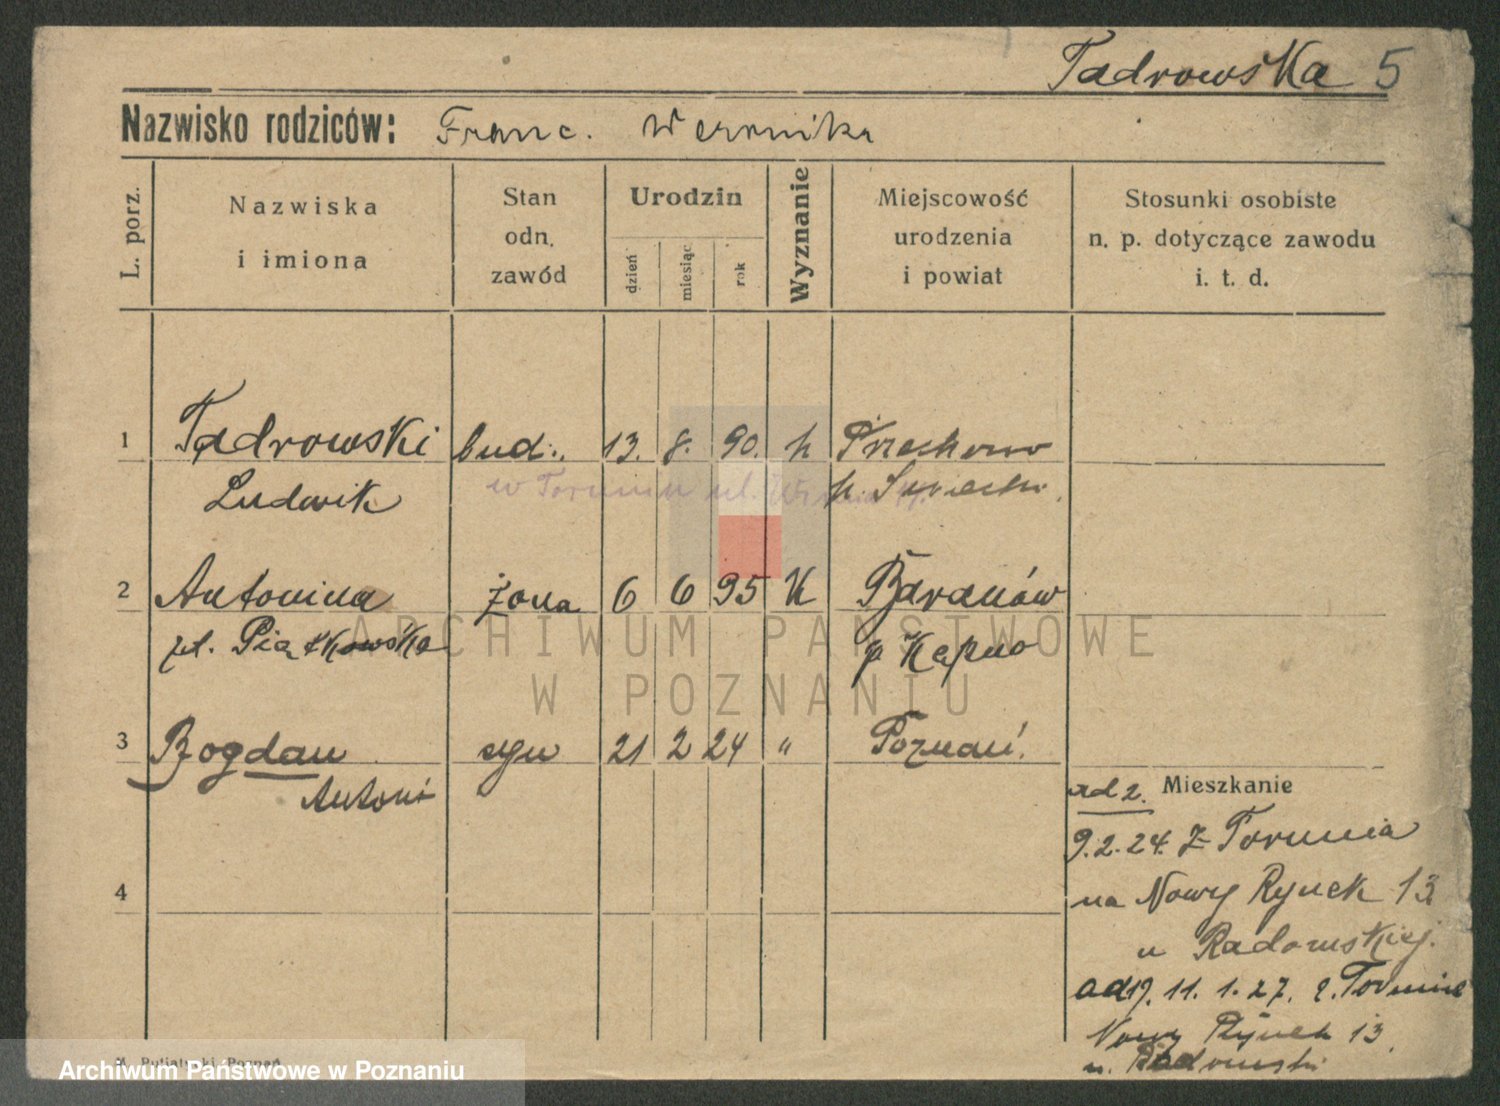 Tadrowska 5
Nazwisko rodziców: Franc. Weronika
L. porz.
Nazwiska i imiona
Stan odn. zawód
Urodzin
dzień
miesiąc
rok
Wyznanie
Miejscowość urodzenia i powiat
Stosunki osobiste n. p. dotyczące zawodu i. t. d.
1 Tadrowski bud. 13. 8. 90. k Przechowo
Ludwik
w Toruniu ul.
2 Antonina żona 6 6 95 K Baranów
Piątkowska p Kępno
3 Bogdan syn 21 2 24 " Poznań.
Antoni
Mieszkanie
ad 2.
9.2.24. z Torunia
na Nowy Rynek 13
u Radomskiej.
11. 1. 27. z. Torunia
Nowy Rynek 13
u. Radomski
4
ARCHIWUM PAŃSTWOWE
W POZNANIU
Archiwum Państwowe w Poznaniu